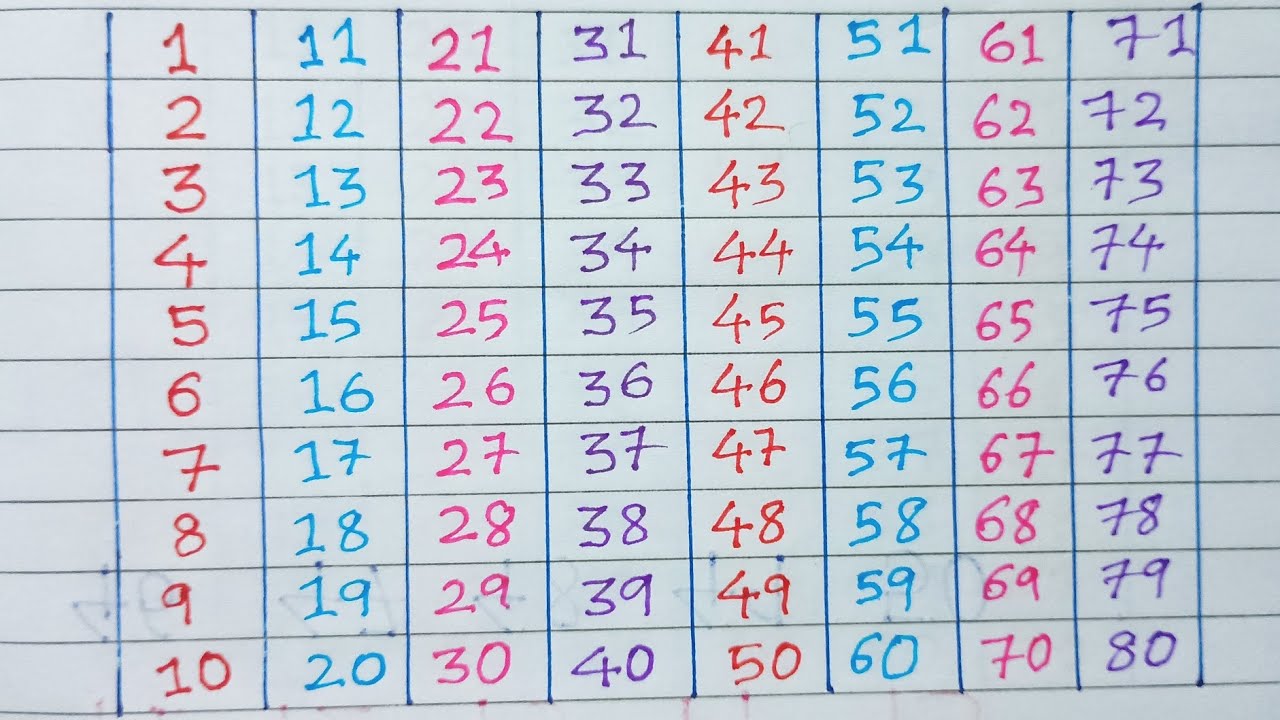 1 11 21 31 41 51 61 71
2 12 22 32 42 52 62 72
3 13 23 33 43 53 63 73
4 14 24 34 44 54 64 74
5 15 25 35 45 55 65 75
6 16 26 36 46 56 66 76
7 17 27 37 47 57 67 77
8 18 28 38 48 58 68 78
9 19 29 39 49 59 69 79
10 20 30 40 50 60 70 80